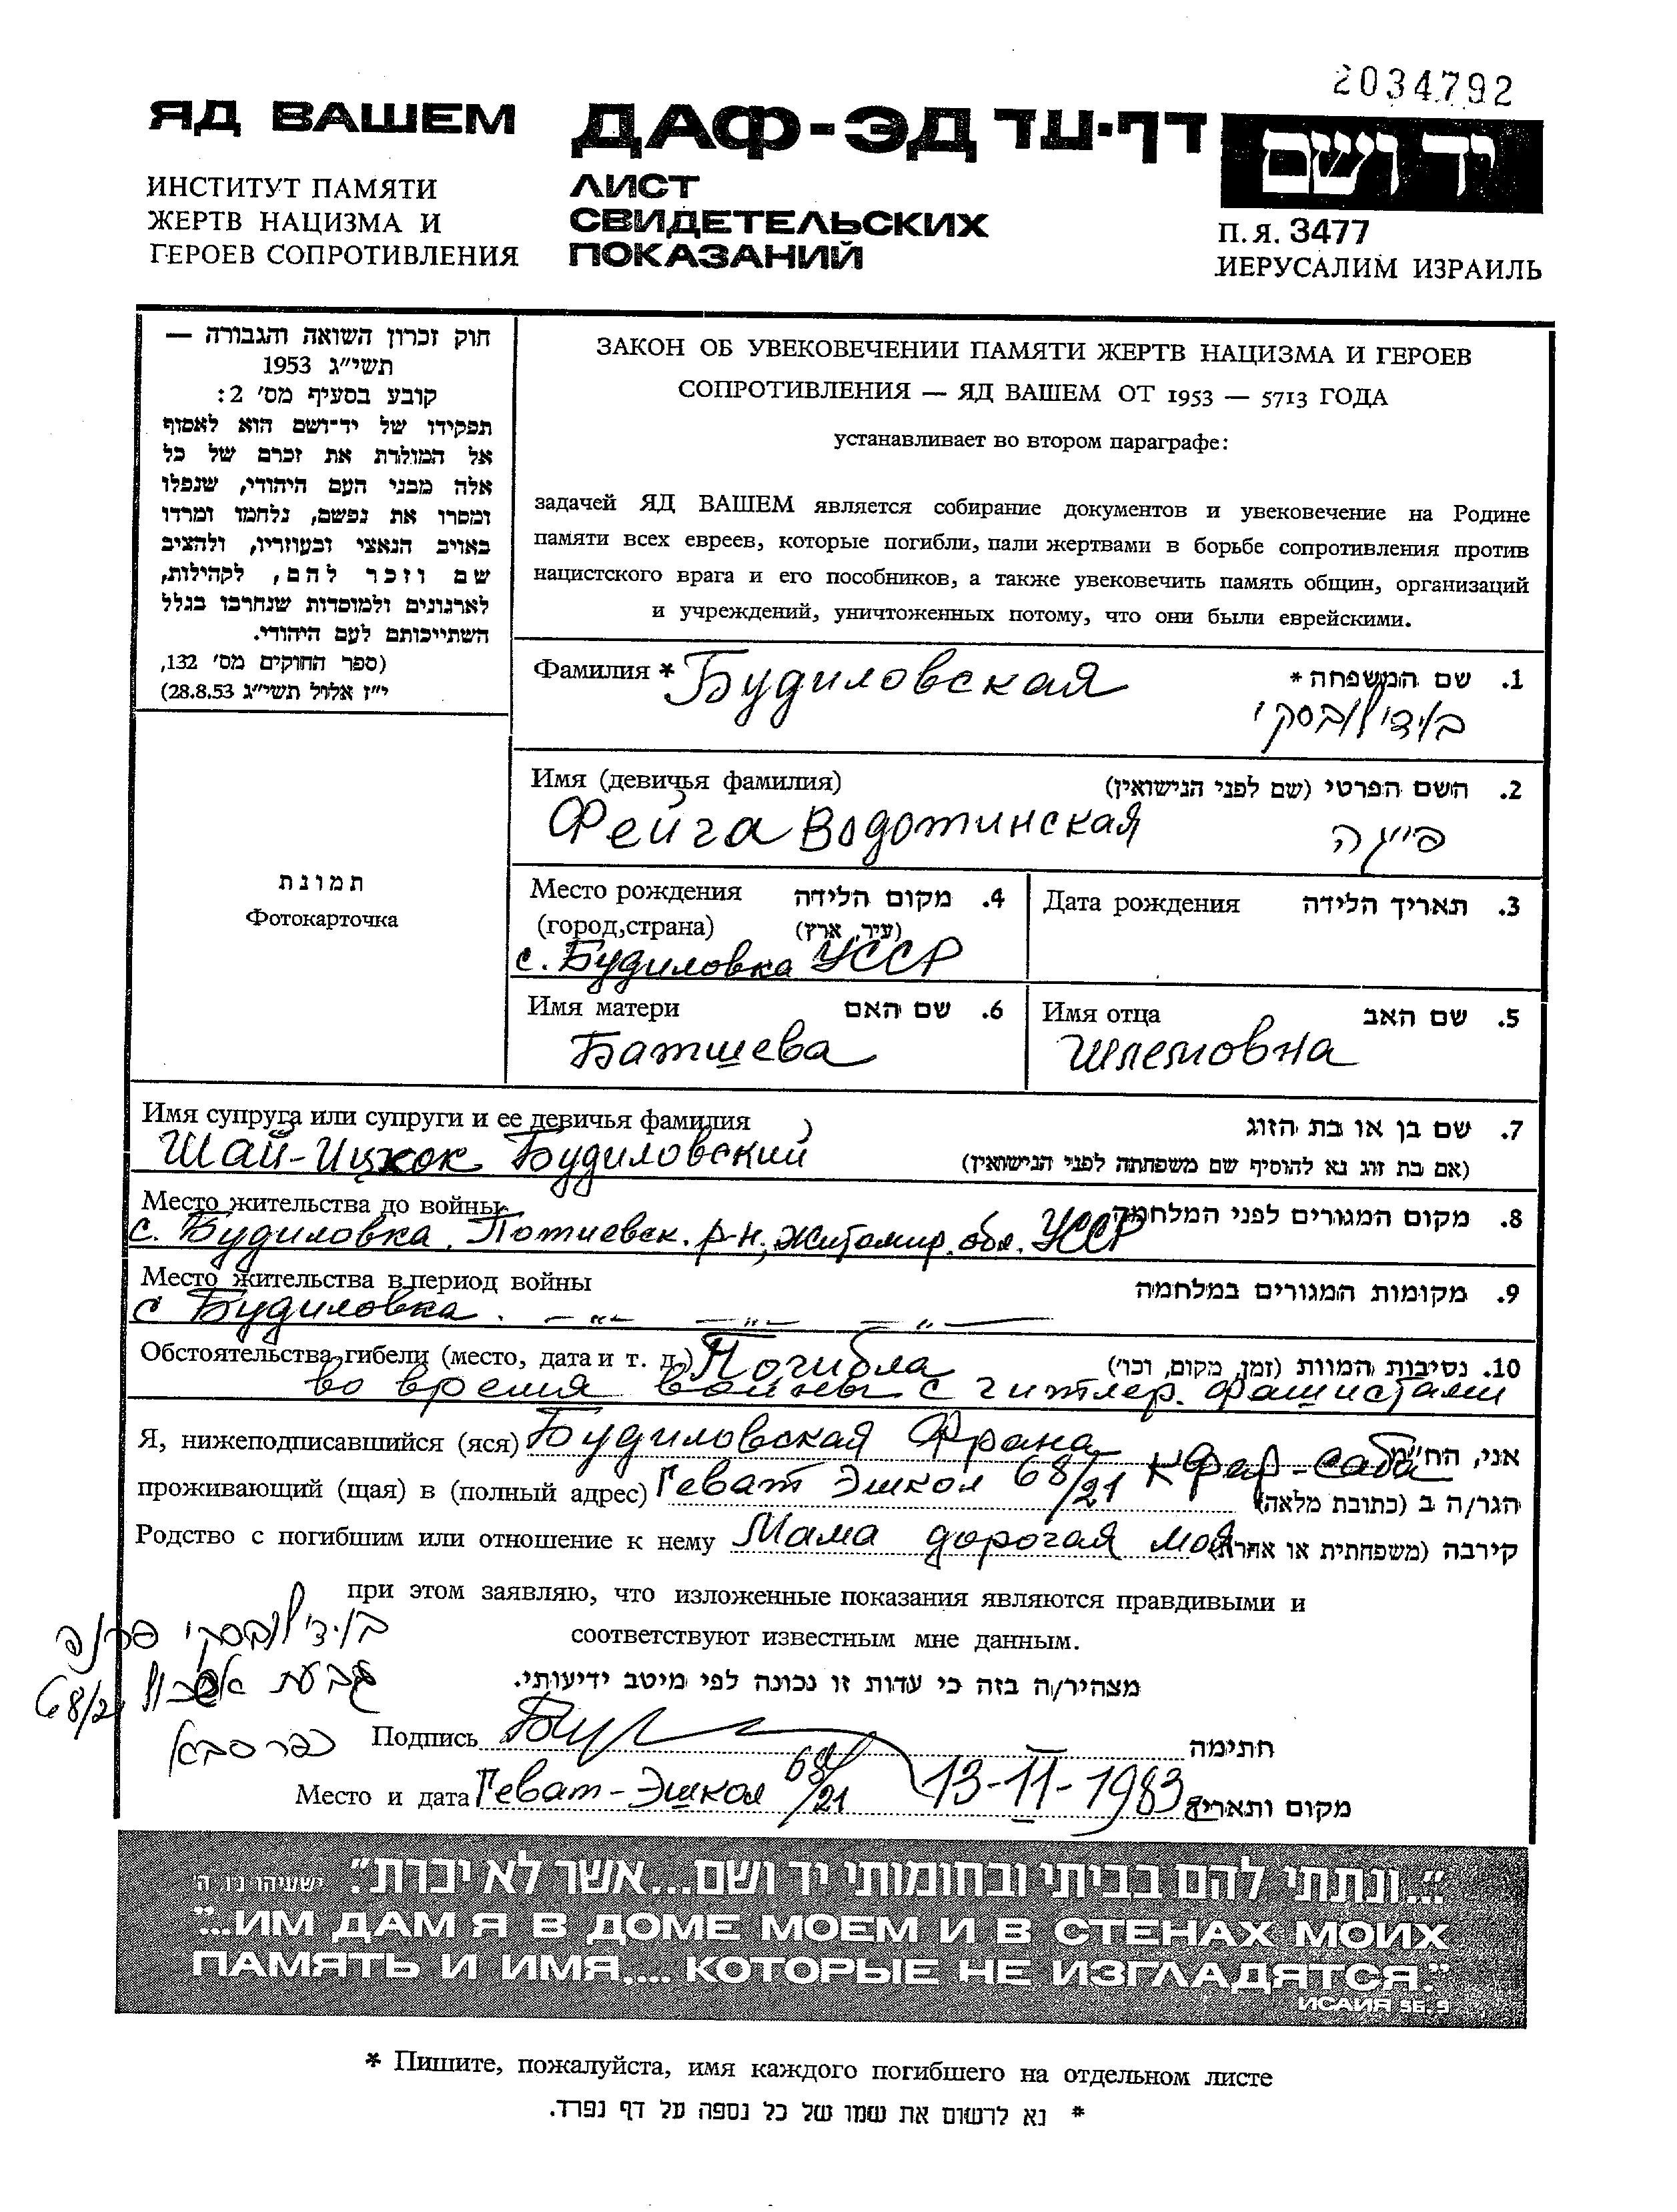 2034792
ЯД ВАШЕМ ДАФ-ЭД דף-עד יד ושם
ИНСТИТУТ ПАМЯТИ
ЖЕРТВ НАЦИЗМА И
ГЕРОЕВ СОПРОТИВЛЕНИЯ
ЛИСТ
СВИДЕТЕЛЬСКИХ
ПОКАЗАНИЙ
П.Я. 3477
ИЕРУСАЛИМ ИЗРАИЛЬ
חוק זכרון השואה והגבורה —
תשי״ג 1953
קובע בסעיף מס׳ 2:
תפקידו של יד־ושם הוא לאסוף
אל המולדת את זכרם של כל
אלה מבני העם היהודי, שנפלו
ומסרו את נפשם, נלחמו ומרדו
באויב הנאצי ובעוזריו, ולהציב
שם וזכר להם, לקהילות,
לארגונים ולמוסדות שנחרבו בגלל
השתייכותם לעם היהודי.
(ספר החוקים מס׳ 132,
י״ז אלול תשי״ג 28.8.53)
ЗАКОН ОБ УВЕКОВЕЧЕНИИ ПАМЯТИ ЖЕРТВ НАЦИЗМА И ГЕРОЕВ
СОПРОТИВЛЕНИЯ — ЯД ВАШЕМ ОТ 1953 — 5713 ГОДА
устанавливает во втором параграфе:
задачей ЯД ВАШЕМ является собирание документов и увековечение на Родине
памяти всех евреев, которые погибли, пали жертвами в борьбе сопротивления против
нацистского врага и его пособников, а также увековечить память общин, организаций
и учреждений, уничтоженных потому, что они были еврейскими.
Фамилия * Будиловская 1. שם המשפחה *
בודילובסקי
Имя (девичья фамилия) 2. השם הפרטי (שם לפני הנישואין)
Фейга Водотинская פייגה
תמונת
Фотокарточка
Место рождения 4. מקום הלידה
(город,страна) (עיר, ארץ)
с. Будиловка УССР
Дата рождения 3. תאריך הלידה
Имя матери 6. שם האם
Батшева
Имя отца 5. שם האב
Шлемовна
Имя супруга или супруги и ее девичья фамилия 7. שם בן או בת הזוג
Шай-Ицхок Будиловский (אם בת זוג נא להוסיף שם משפחתה לפני הנישואין)
Место жительства до войны 8. מקום המגורים לפני המלחמה
с. Будиловка, Потиевск. р-н, Житомир. обл. УССР
Место жительства в период войны 9. מקומות המגורים במלחמה
с Будиловка. —"— —"— —"—
Обстоятельства гибели (место, дата и т. д.) Погибла 10. נסיבות המוות (זמן, מקום, וכו׳)
во время войны с гитлер. фашистами
Я, нижеподписавшийся (яся) Будиловская Франа אני, הח״מ
проживающий (щая) в (полный адрес) Геват Эшкол 68/21 Кфар-саба הגר/ה ב (כתובת מלאה)
Родство с погибшим или отношение к нему Мама дорогая моя קירבה (משפחתית או אחרת)
при этом заявляю, что изложенные показания являются правдивыми и
соответствуют известным мне данным.
מצהיר/ה בזה כי עדות זו נכונה לפי מיטב ידיעותי.
בודילובסקי פרנה
גבעת אשכול 68/21
כפר סבא
Подпись חתימה
Место и дата Геват-Эшкол 68/21 13-11-1983 מקום ותאריך
"...ונתתי להם בביתי ובחומותי יד ושם...אשר לא יכרת". ישעיהו נ״ו, ה׳
"...ИМ ДАМ Я В ДОМЕ МОЕМ И В СТЕНАХ МОИХ
ПАМЯТЬ И ИМЯ,... КОТОРЫЕ НЕ ИЗГЛАДЯТСЯ."
ИСАИЯ 56. 9
* Пишите, пожалуйста, имя каждого погибшего на отдельном листе
* נא לרשום את שמו של כל נספה על דף נפרד.